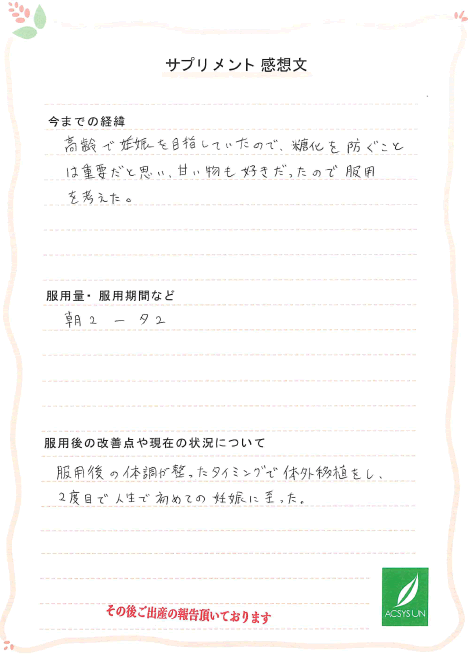 サプリメント 感想文
今までの経緯
高齢で妊娠を目指していたので、糖化を防ぐこと
は重要だと思い、甘い物も好きだったので服用
を考えた。
服用量・服用期間など
朝2 ー 夕2
服用後の改善点や現在の状況について
服用後の体調が整ったタイミングで体外移植をし、
2度目で人生で初めての妊娠に至った。
その後ご出産の報告頂いております
ACSYSUN